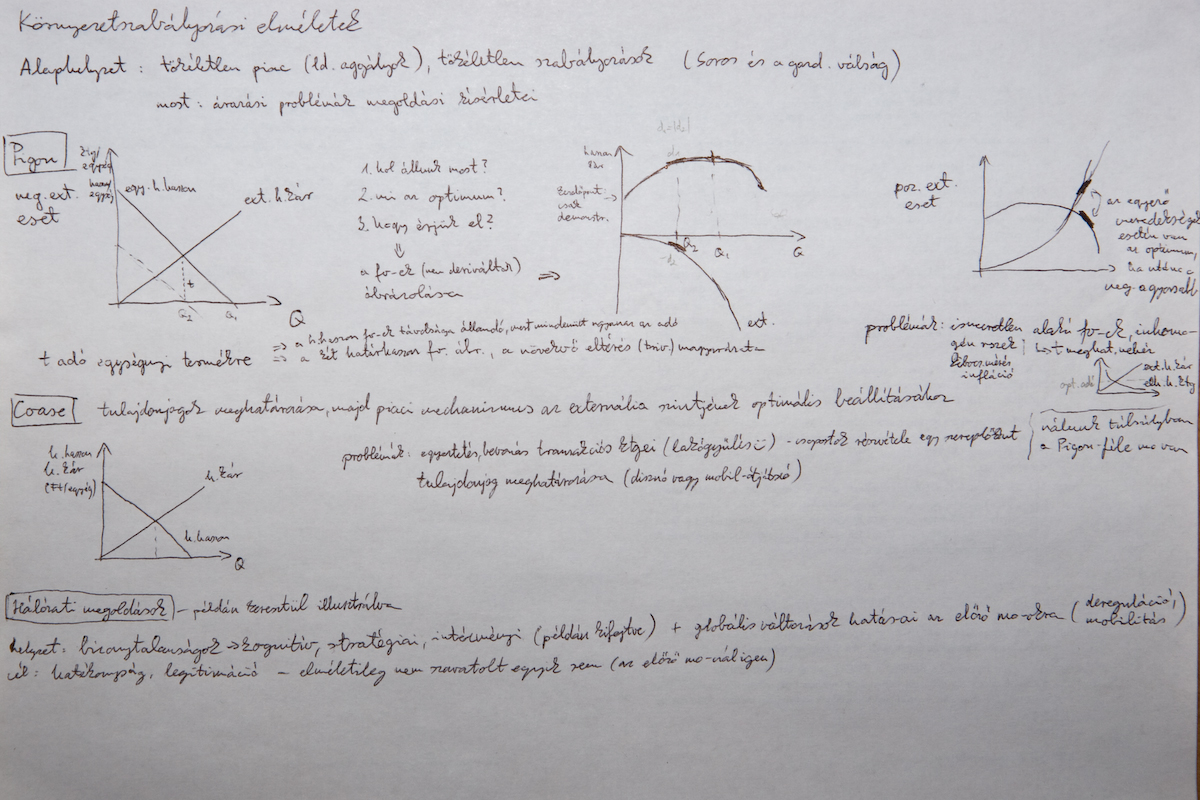 Környezetszabályozási elméletek
Alaphelyzet : tökéletlen piac (ld. aggályok), tökéletlen szabályozások (Soros és a gazd. válság)
most : árazási problémák megoldási kísérletei
Pigou
neg. ext.
eset
egy. h. haszon
ext. h. kár
t
Q2
Q1
Q
1. hol állunk most?
2. mi az optimum?
3. hogy érjük el?
a fv-ek (nem deriváltak)
ábrázolása
haszon
kár
demonstr.
Q2
Q1
Q
ext.
poz. ext.
eset
az egyenlő
meredekségek
esetén van
az optimum,
ha utána a
neg. a gyorsabb
t adó egységnyi termékre
⇒ a h. haszon fv-ek távolsága állandó, mert mindenütt ugyanaz az adó
⇒ a két határhaszon fv. ábr., a növekvő eltérés (triv.) magyarázata
problémák: ismeretlen alakú fv-ek, inhomo-
gén részek
t meghat. nehéz
kibocs. mérés
infláció
opt. adó
ext. h. kár
elh. h. ktg
Coase
tulajdonjogok meghatározása, majd piaci mechanizmus az externália szintjének optimális beállításához
problémák: egyeztetés, bevonás tranzakciós ktgei (lakógyűlés) - csoportok részvétele egy szereplőként
tulajdonjog meghatározása (disznó vagy mobil-átjátszó)
nálunk túlsúlyban
a Pigou-féle mo van
h. haszon
h. kár
(Ft/egység)
h. kár
h. haszon
Q
Hálózati megoldások - példán keresztül illusztrálva
helyzet: bizonytalanságok → kognitív, stratégiai, intézményi (példán kifejtve) + globális változások hatásai az előző mo-okra (dereguláció,
mobilitás)
cél: hatékonyság, legitimáció - elméletileg nem szavatolt egyik sem (az előző mo-nál igen)